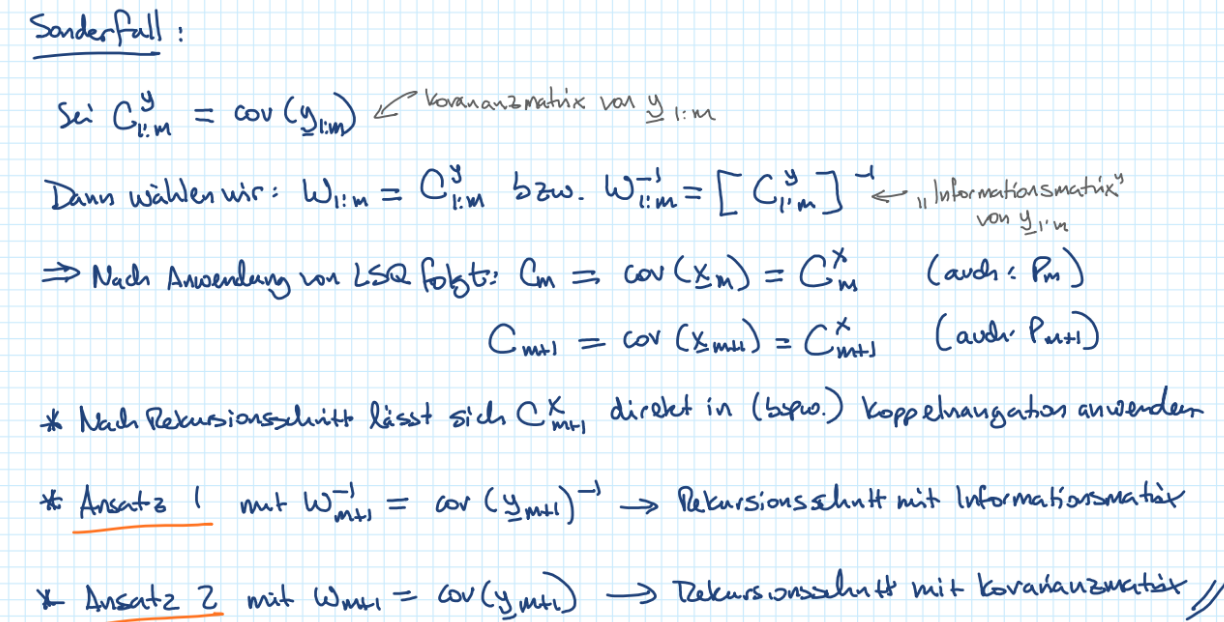 Sonderfall:
Sei C^y_{1:m} = cov(y_{1:m}) ← Kovarianzmatrix von y_{1:m}
Dann wählen wir: W_{1:m} = C^y_{1:m} bzw. W^{-1}_{1:m} = [C^y_{1:m}]^{-1} ← „Informationsmatrix" von y_{1:m}
⇒ Nach Anwendung von LSQ folgt: C_m = cov(x_m) = C^x_m (auch: P_m)
C_{m+1} = cov(x_{m+1}) = C^x_{m+1} (auch: P_{m+1})
* Nach Rekursionsschritt lässt sich C^x_{m+1} direkt in (bspw.) Koppelnavigation anwenden
* Ansatz 1 mit W^{-1}_{m+1} = cov(y_{m+1})^{-1} → Rekursionsschritt mit Informationsmatrix
* Ansatz 2 mit W_{m+1} = cov(y_{m+1}) → Rekursionsschritt mit Kovarianzmatrix //